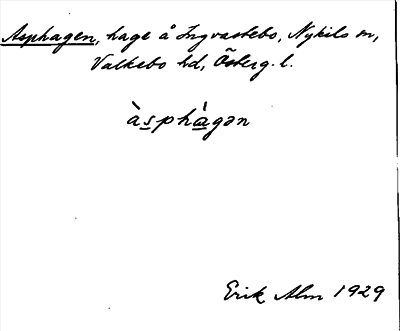 Asphagen, hage å Ingvastebo, Nykils sn,
Valkebo hd, Österg. l.
àsphàgən
Erik Alm 1929